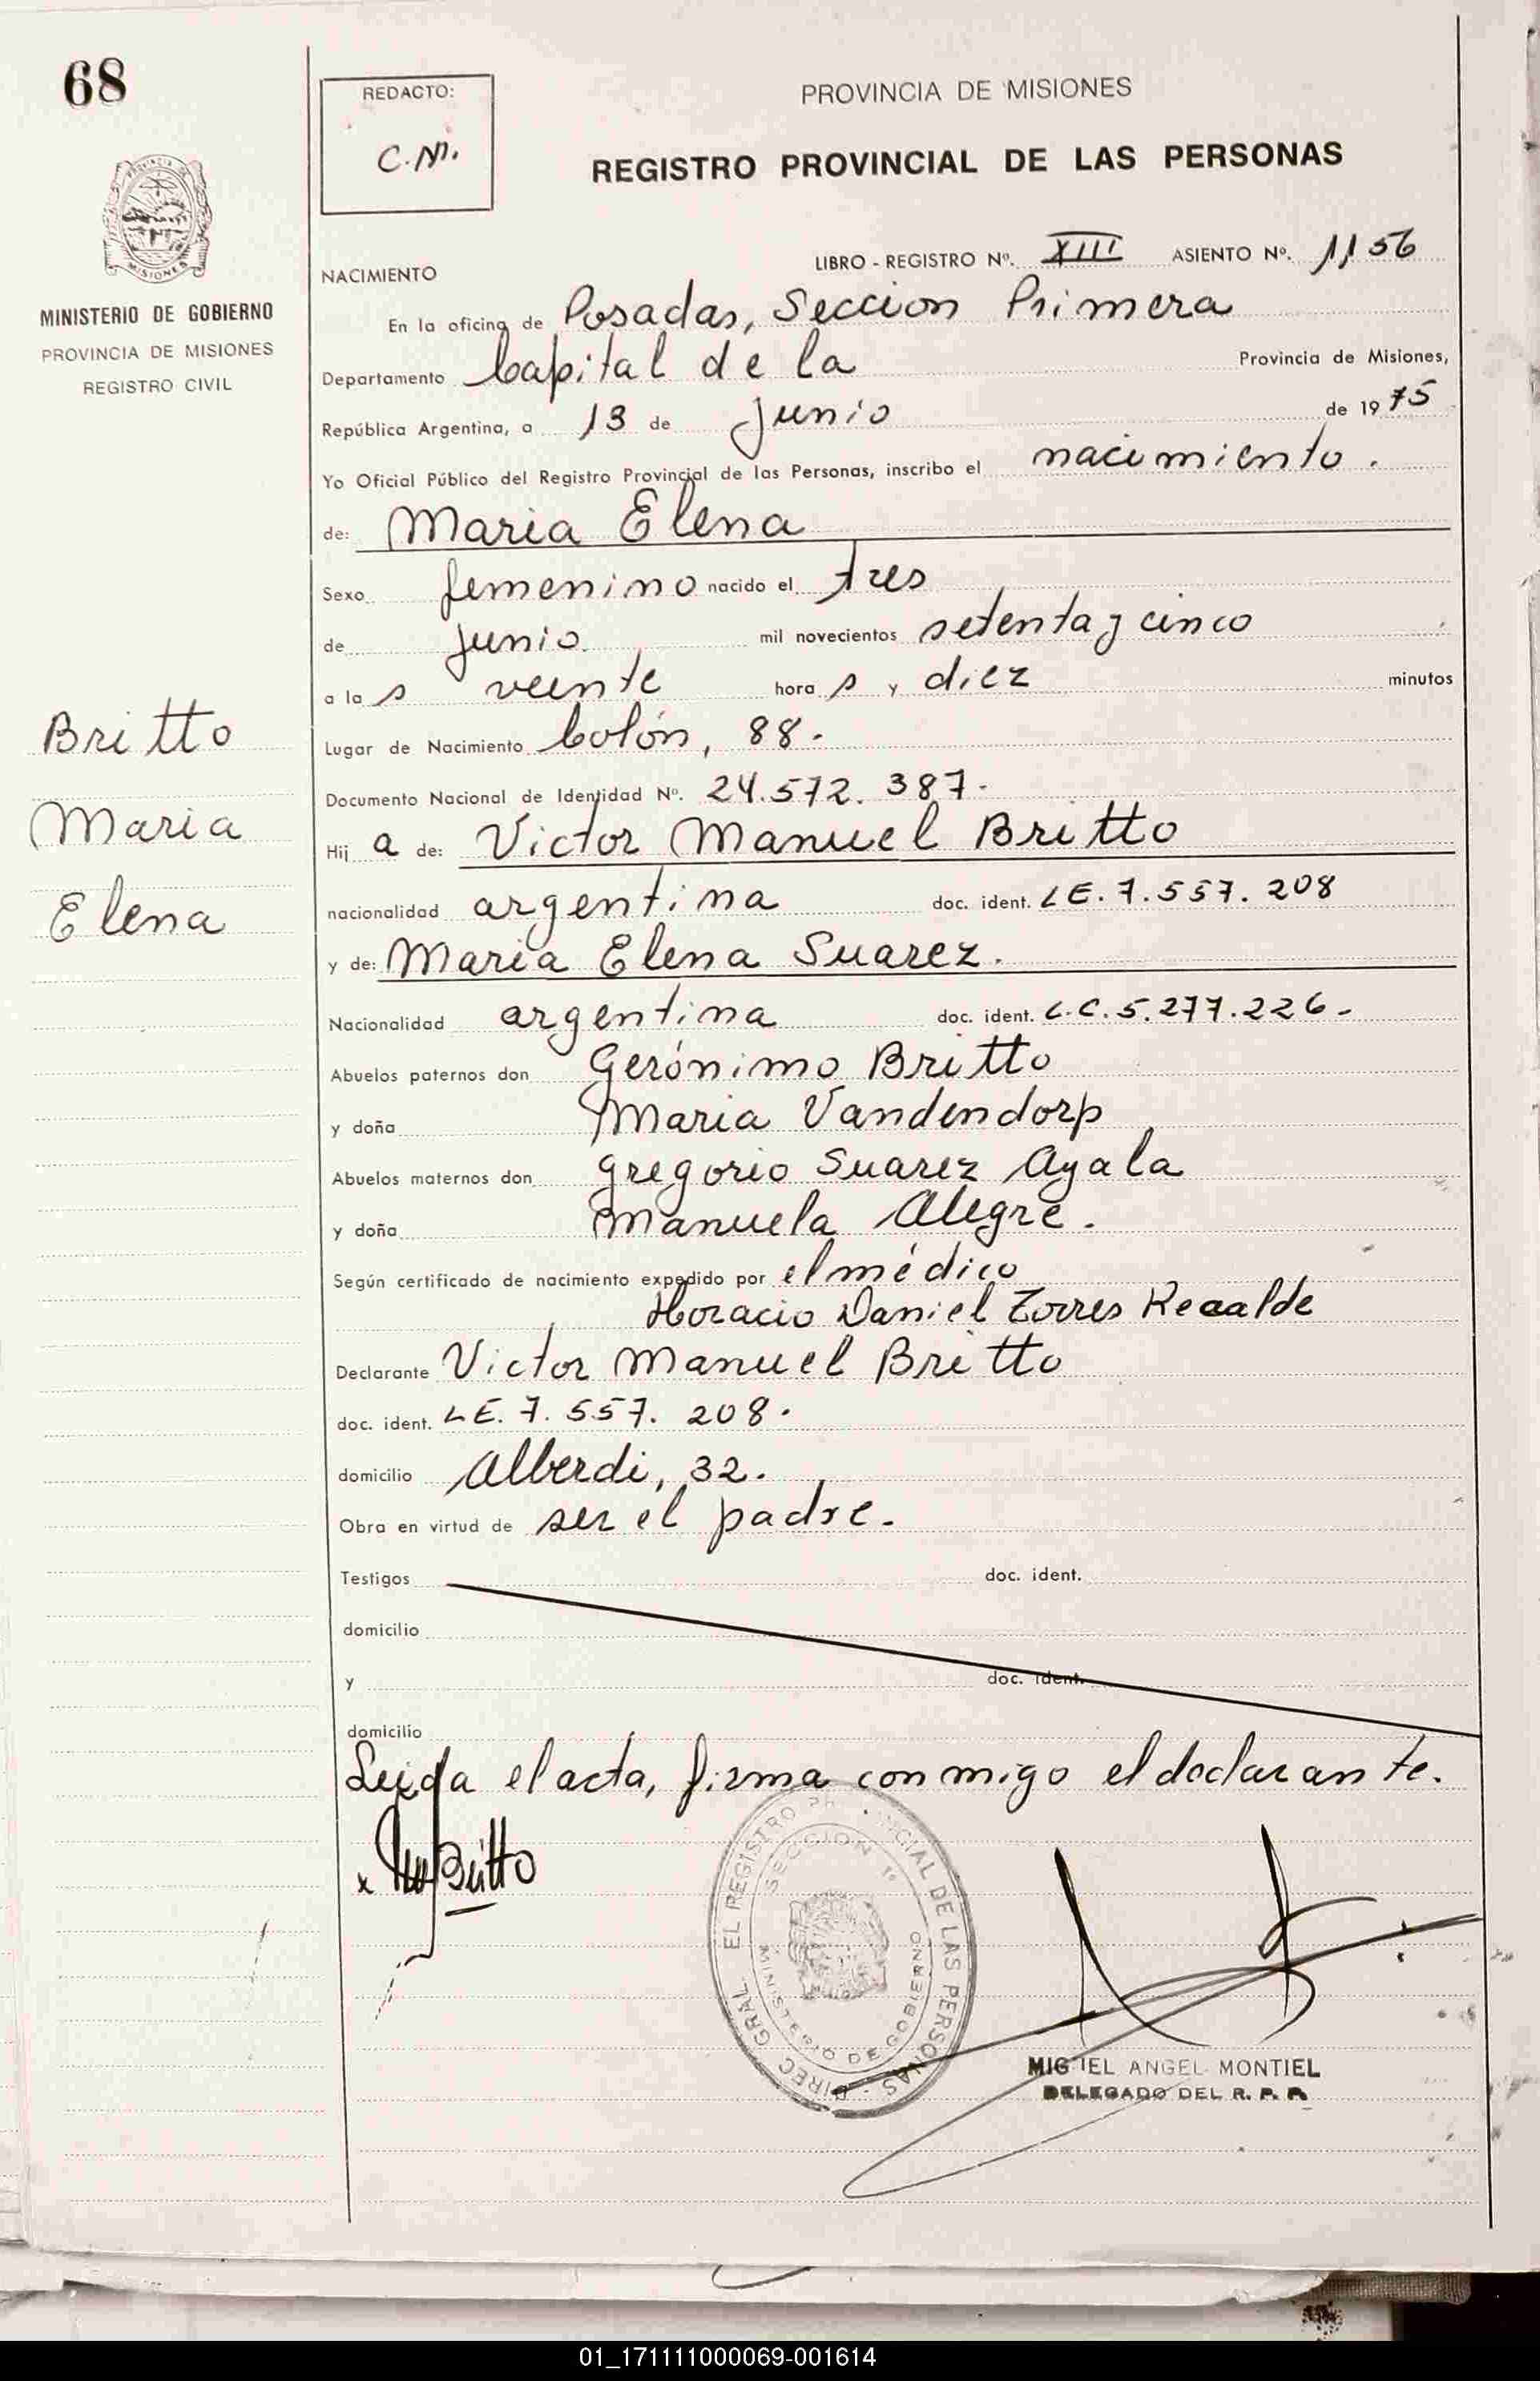 68
MISIONES
MINISTERIO DE GOBIERNO
PROVINCIA DE MISIONES
REGISTRO CIVIL
Britto
Maria
Elena
REDACTO:
C.M.
PROVINCIA DE MISIONES
REGISTRO PROVINCIAL DE LAS PERSONAS
LIBRO - REGISTRO Nº. XIII ASIENTO Nº. 1156
NACIMIENTO
En la oficina de Posadas, Seccion Primera
Departamento Capital de la Provincia de Misiones,
República Argentina, a 13 de Junio de 1975
Yo Oficial Público del Registro Provincial de las Personas, inscribo el nacimiento.
de: Maria Elena
Sexo femenino nacido el tres
de junio mil novecientos setenta y cinco
a la s veinte hora s y diez minutos
Lugar de Nacimiento Colón, 88.
Documento Nacional de Identidad Nº. 24.572.387.
Hij a de: Victor Manuel Britto
nacionalidad argentina doc. ident. LE. 7.557.208
y de: Maria Elena Suarez.
Nacionalidad argentina doc. ident. L.C. 5.277.226-
Abuelos paternos don Gerónimo Britto
y doña Maria Vandendorp
Abuelos maternos don Gregorio Suarez Ayala
y doña Manuela Alegre.
Según certificado de nacimiento expedido por el médico
Horacio Daniel Torres Recalde
Declarante Victor Manuel Britto
doc. ident. LE. 7.557.208.
domicilio Alberdi, 32.
Obra en virtud de ser el padre.
Testigos doc. ident.
domicilio
y doc. ident.
domicilio
Leida el acta, firma conmigo el declarante.
x Britto
DIREC. GRAL. EL REGISTRO PROVINCIAL DE LAS PERSONAS
SECCION 1ª
MINISTERIO DE GOBIERNO
MIGUEL ANGEL MONTIEL
DELEGADO DEL R. P. P.
01_171111000069-001614